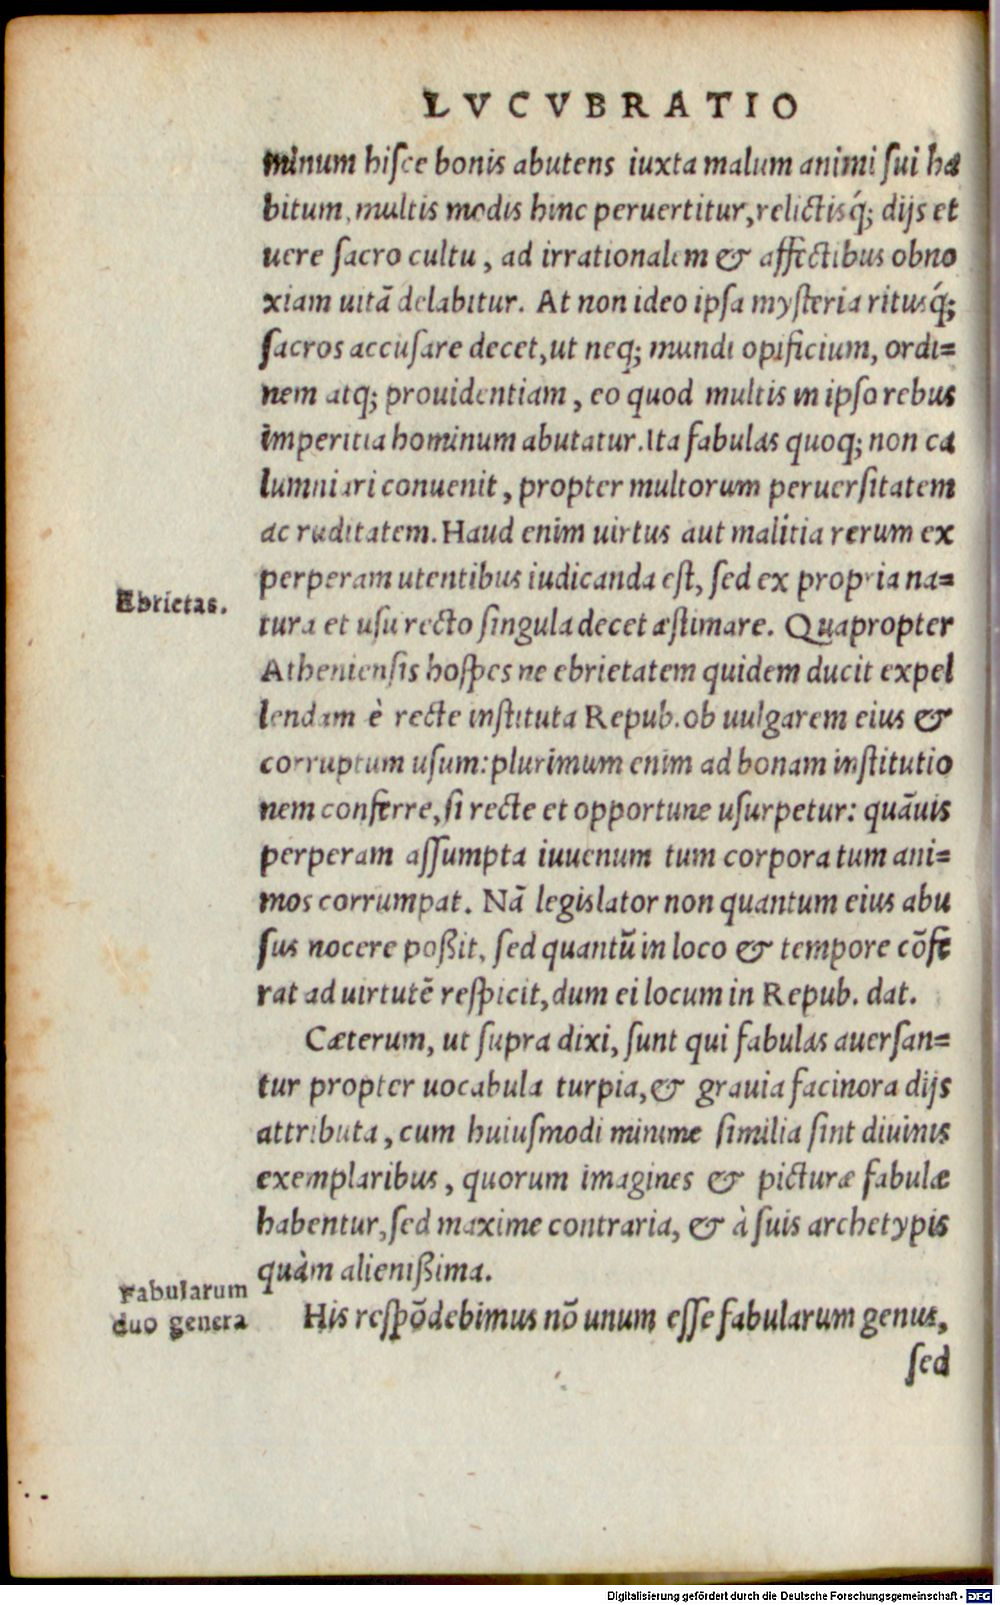 LVCVBRATIO
minum hisce bonis abutens iuxta malum animi sui ha
bitum, multis modis hinc peruertitur, relictisq́; dijs et
uere sacro cultu, ad irrationalem & affectibus obno
xiam uitã delabitur. At non ideo ipsa mysteria ritusq́;
sacros accusare decet, ut neq; mundi opificium, ordi=
nem atq; prouidentiam, eo quod multis in ipso rebus
imperitia hominum abutatur. Ita fabulas quoq; non ca
lumniari conuenit, propter multorum peruersitatem
ac ruditatem. Haud enim uirtus aut malitia rerum ex
perperam utentibus iudicanda est, sed ex propria na=
Ebrietas.
tura et usu recto singula decet æstimare. Quapropter
Atheniensis hospes ne ebrietatem quidem ducit expel
lendam è recte instituta Repub. ob uulgarem eius &
corruptum usum: plurimum enim ad bonam institutio
nem conferre, si recte et opportune usurpetur: quãuis
perperam assumpta iuuenum tum corpora tum ani=
mos corrumpat. Nã legislator non quantum eius abu
sus nocere poßit, sed quantũ in loco & tempore cõfe
rat ad uirtutẽ respicit, dum ei locum in Repub. dat.
Cæterum, ut supra dixi, sunt qui fabulas auersan=
tur propter uocabula turpia, & grauia facinora dijs
attributa, cum huiusmodi minime similia sint diuinis
exemplaribus, quorum imagines & picturæ fabulæ
habentur, sed maxime contraria, & à suis archetypis
quàm alienißima.
Fabularum
duo genera
His respõdebimus nõ unum esse fabularum genus,
sed
Digitalisierung gefördert durch die Deutsche Forschungsgemeinschaft - DFG